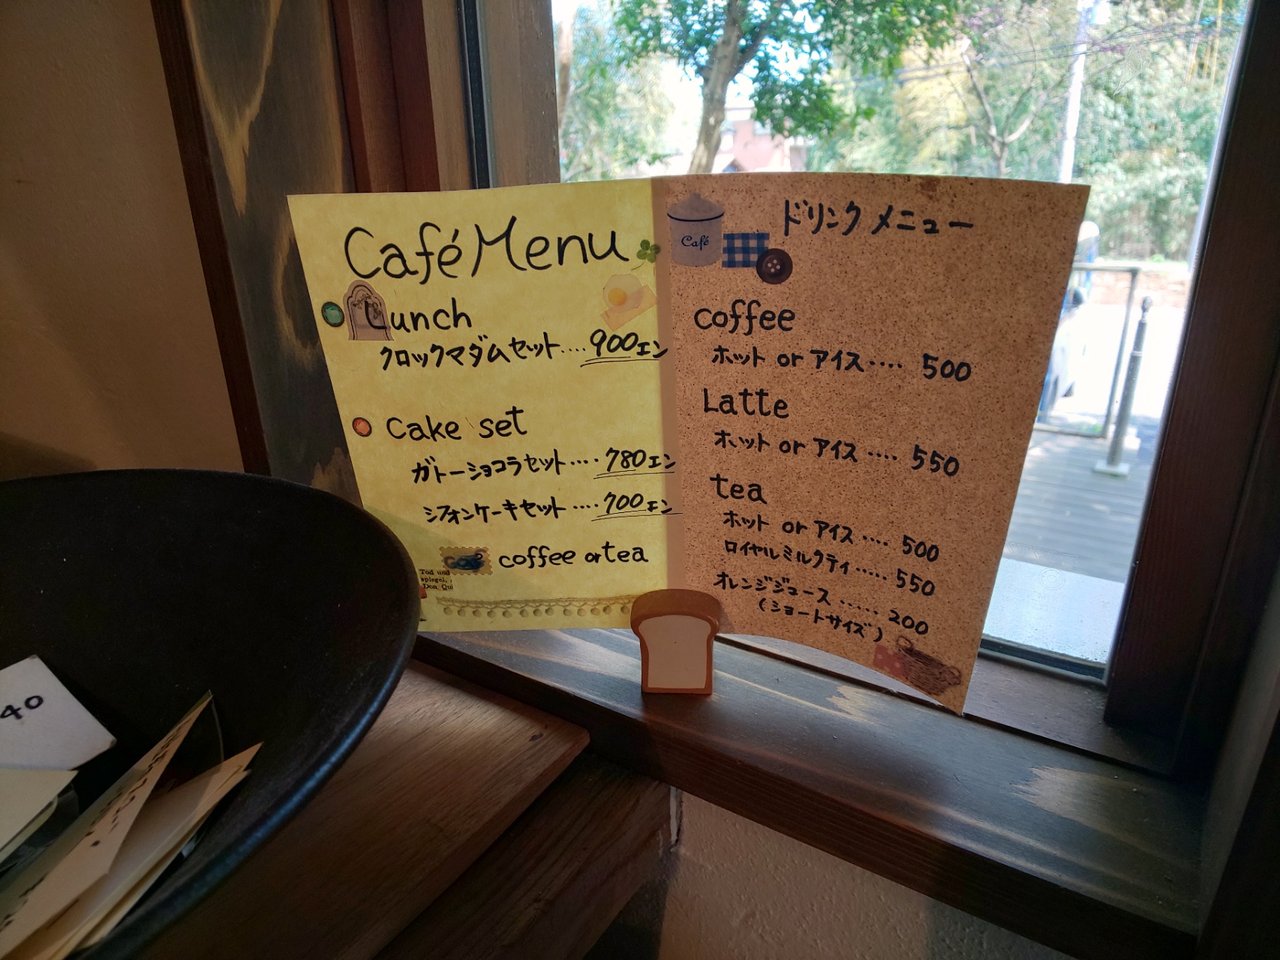 Café Menu
Lunch
クロックマダムセット....900エン
Cake set
ガトーショコラセット....780エン
シフォンケーキセット....700エン
coffee or tea
Café
ドリンクメニュー
coffee
ホット or アイス.... 500
Latte
ホット or アイス.... 550
tea
ホット or アイス.... 500
ロイヤルミルクティ..... 550
オレンジジュース...... 200
(ショートサイズ)
40